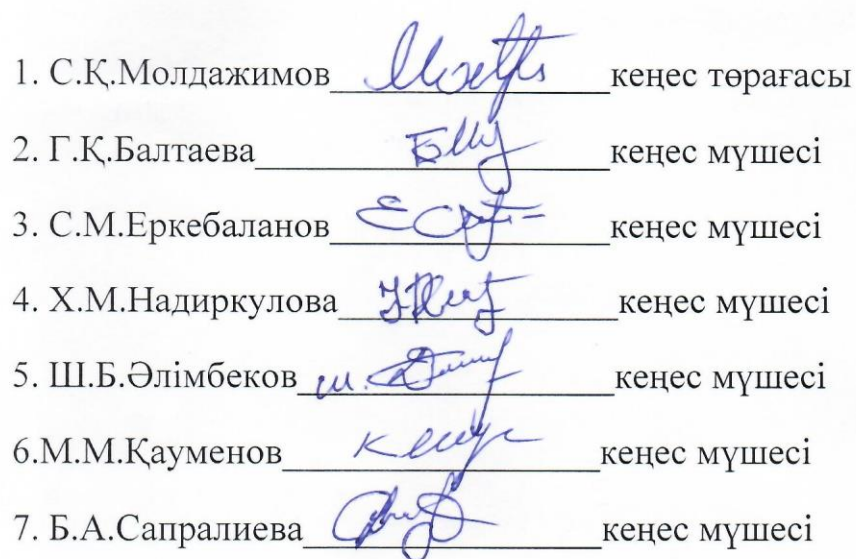 1. С.Қ.Молдажимов кеңес төрағасы
2. Г.Қ.Балтаева кеңес мүшесі
3. С.М.Еркебаланов кеңес мүшесі
4. Х.М.Надиркулова кеңес мүшесі
5. Ш.Б.Әлімбеков кеңес мүшесі
6.М.М.Қауменов кеңес мүшесі
7. Б.А.Сапралиева кеңес мүшесі